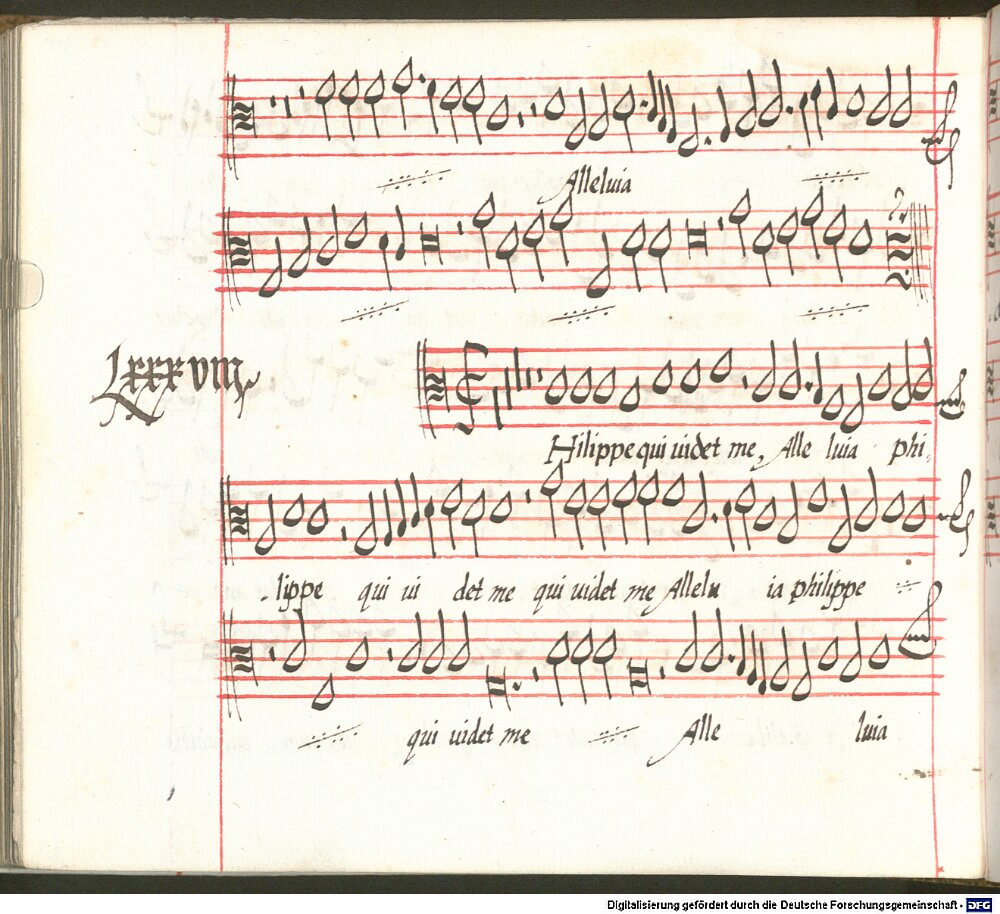 Alleluia
Lxxxviii
Hilippe qui uidet me, Alle luia phi,
lippe qui ui det me qui uidet me Allelu ia philippe
qui uidet me Alle luia
Digitalisierung gefördert durch die Deutsche Forschungsgemeinschaft - DFG